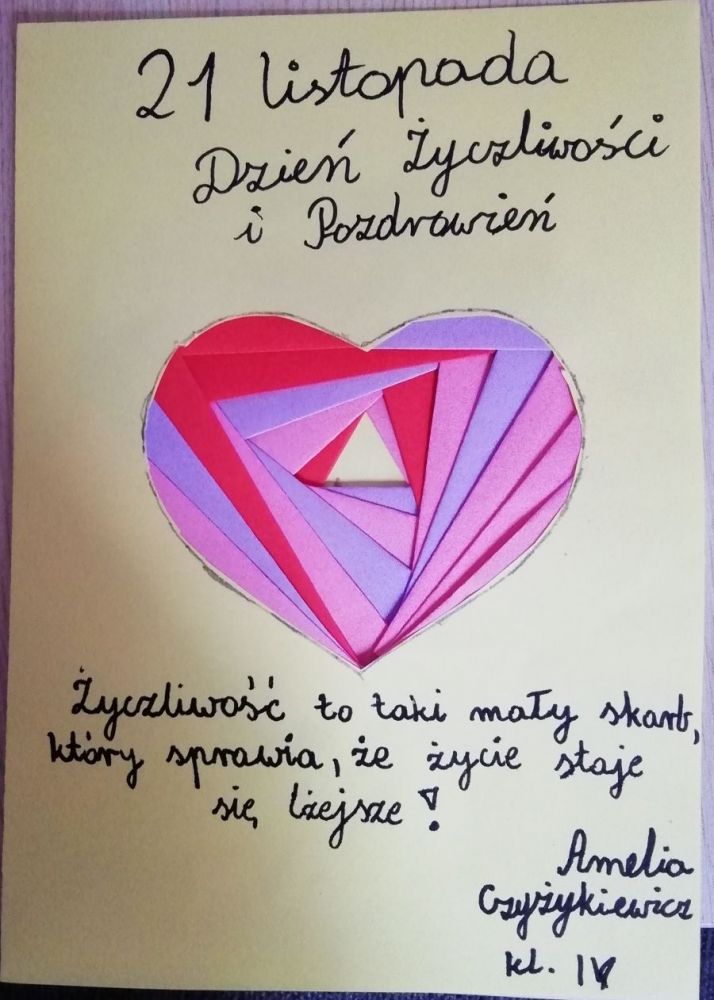 21 listopada
Dzień Życzliwości
i Pozdrowień
Życzliwość to taki mały skarb,
który sprawia, że życie staje
się lżejsze!
Amelia
Czyżykiewicz
kl. IV